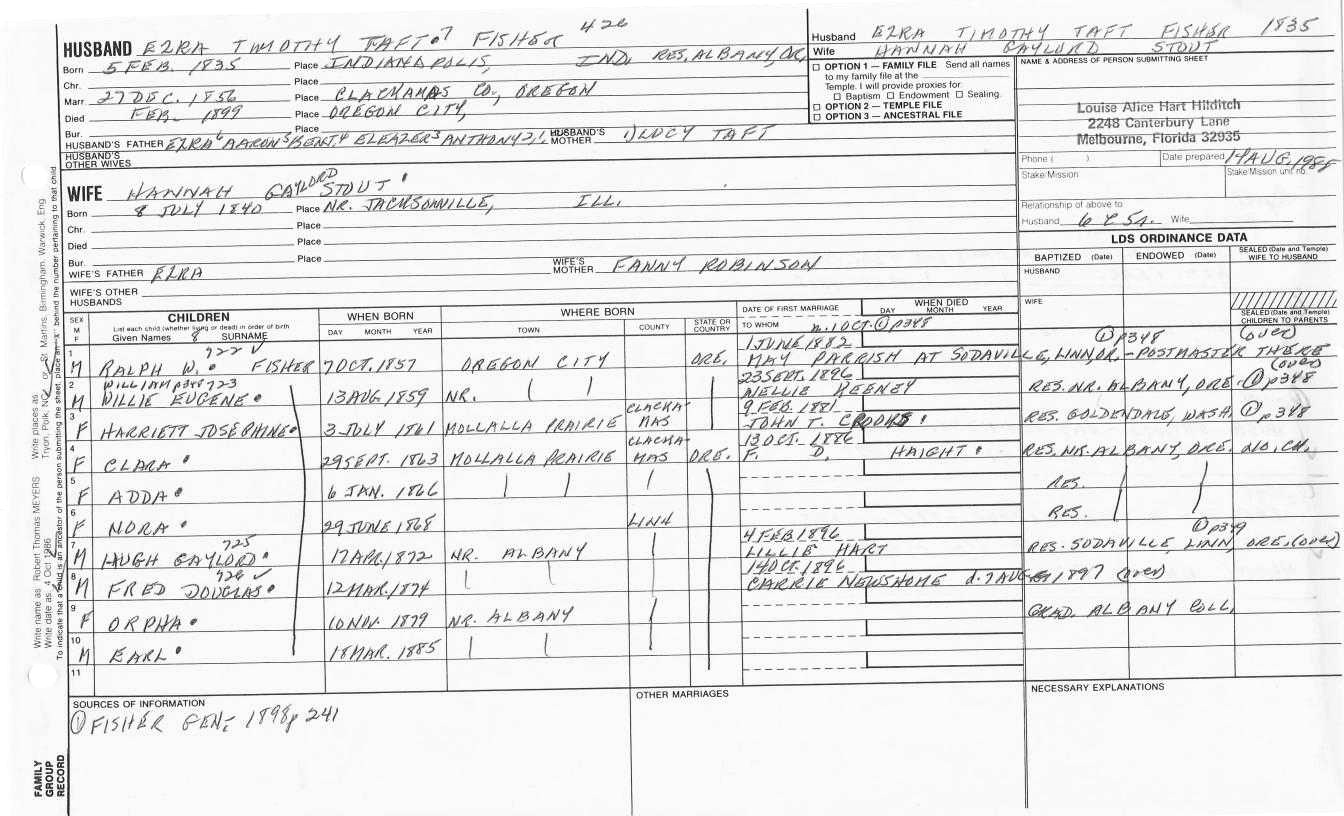 HUSBAND EZRA TIMOTHY TAFT•7 FISHER 426
Born 5 FEB. 1835 Place INDIANAPOLIS, IND. RES. ALBANY, OR.
Chr. Place
Marr. 27 DEC. 1856 Place CLACKAMAS CO., OREGON
Died FEB. 1899 Place OREGON CITY,
Bur. Place
HUSBAND'S FATHER EZRA6 AARON5 BENJ.4 ELEAZER3 ANTHONY2,1. HUSBAND'S MOTHER 1) LUCY TAFT
HUSBAND'S OTHER WIVES
WIFE HANNAH GAYLORD STOUT•
Born 8 JULY 1840 Place NR. JACKSONVILLE, ILL.
Chr. Place
Died Place
Bur. Place
WIFE'S FATHER EZRA WIFE'S MOTHER FANNY ROBINSON
WIFE'S OTHER HUSBANDS
Husband EZRA TIMOTHY TAFT FISHER 1835
Wife HANNAH GAYLORD STOUT
☐ OPTION 1 — FAMILY FILE Send all names
to my family file at the
Temple. I will provide proxies for:
☐ Baptism ☐ Endowment ☐ Sealing.
☐ OPTION 2 — TEMPLE FILE
☐ OPTION 3 — ANCESTRAL FILE
NAME & ADDRESS OF PERSON SUBMITTING SHEET
Louise Alice Hart Hilditch
2248 Canterbury Lane
Melbourne, Florida 32935
Phone ( ) Date prepared 14 AUG, 1988
Stake/Mission Stake/Mission unit no.
Relationship of above to
Husband 6 C 5r. Wife
LDS ORDINANCE DATA
BAPTIZED (Date) ENDOWED (Date) SEALED (Date and Temple) WIFE TO HUSBAND
HUSBAND
WIFE
SEALED (Date and Temple) CHILDREN TO PARENTS
SEX M F CHILDREN
List each child (whether living or dead) in order of birth
Given Names 8 SURNAME
WHEN BORN DAY MONTH YEAR
WHERE BORN TOWN COUNTY STATE OR COUNTRY
DATE OF FIRST MARRIAGE TO WHOM
WHEN DIED DAY MONTH YEAR
m. 1 OCT. ① p348 ① p348 (over)
1 M 722 ✓ RALPH W.• FISHER 7 OCT. 1857 OREGON CITY ORE. 1 JUNE 1882 MAY PARRISH AT SODAVILLE, LINN, OR. - POSTMASTER THERE (over)
2 M WILLIAM p348 723 WILLIE EUGENE• 13 AUG 1859 NR. 23 SEPT. 1896 NELLIE KEENEY RES. NR. ALBANY, ORE. ① p348
3 F HARRIETT JOSEPHINE• 3 JULY 1861 MOLLALLA PRAIRIE CLACKAMAS 9 FEB. 1881 JOHN T. CROOKS• RES. GOLDENDALE, WASH. ① p348
4 F CLARA• 29 SEPT. 1863 MOLLALLA PRAIRIE CLACKAMAS ORE. 13 OCT. 1886 F. D. HAIGHT• RES. NR. ALBANY, ORE. NO. CH.
5 F ADDA• 6 JAN. 1866 RES.
6 F NORA• 29 JUNE 1868 LINN RES.
7 M 725 HUGH GAYLORD• 17 APR. 1872 NR. ALBANY 4 FEB 1896 LILLIE HART ① p349 RES. SODAVILLE, LINN, ORE. (over)
8 M 726 ✓ FRED DOUGLAS• 12 MAR. 1874 14 OCT. 1896 CARRIE NEWSHOME d. 7 AUG 1897 (over)
9 F ORPHA• 10 NOV. 1879 NR. ALBANY GRAD. ALBANY COLL.
10 M EARL• 18 MAR. 1885
11
SOURCES OF INFORMATION
① FISHER GEN., 1898 p 241
OTHER MARRIAGES
NECESSARY EXPLANATIONS
Write name as Robert Thomas MEYERS Write places as Tryon, Polk, NC or St. Martins, Birmingham, Warwick, Eng.
Write date as: 4 Oct 1986
To indicate that a child is an ancestor of the person submitting the sheet, place an "X" behind the number pertaining to that child
FAMILY GROUP RECORD